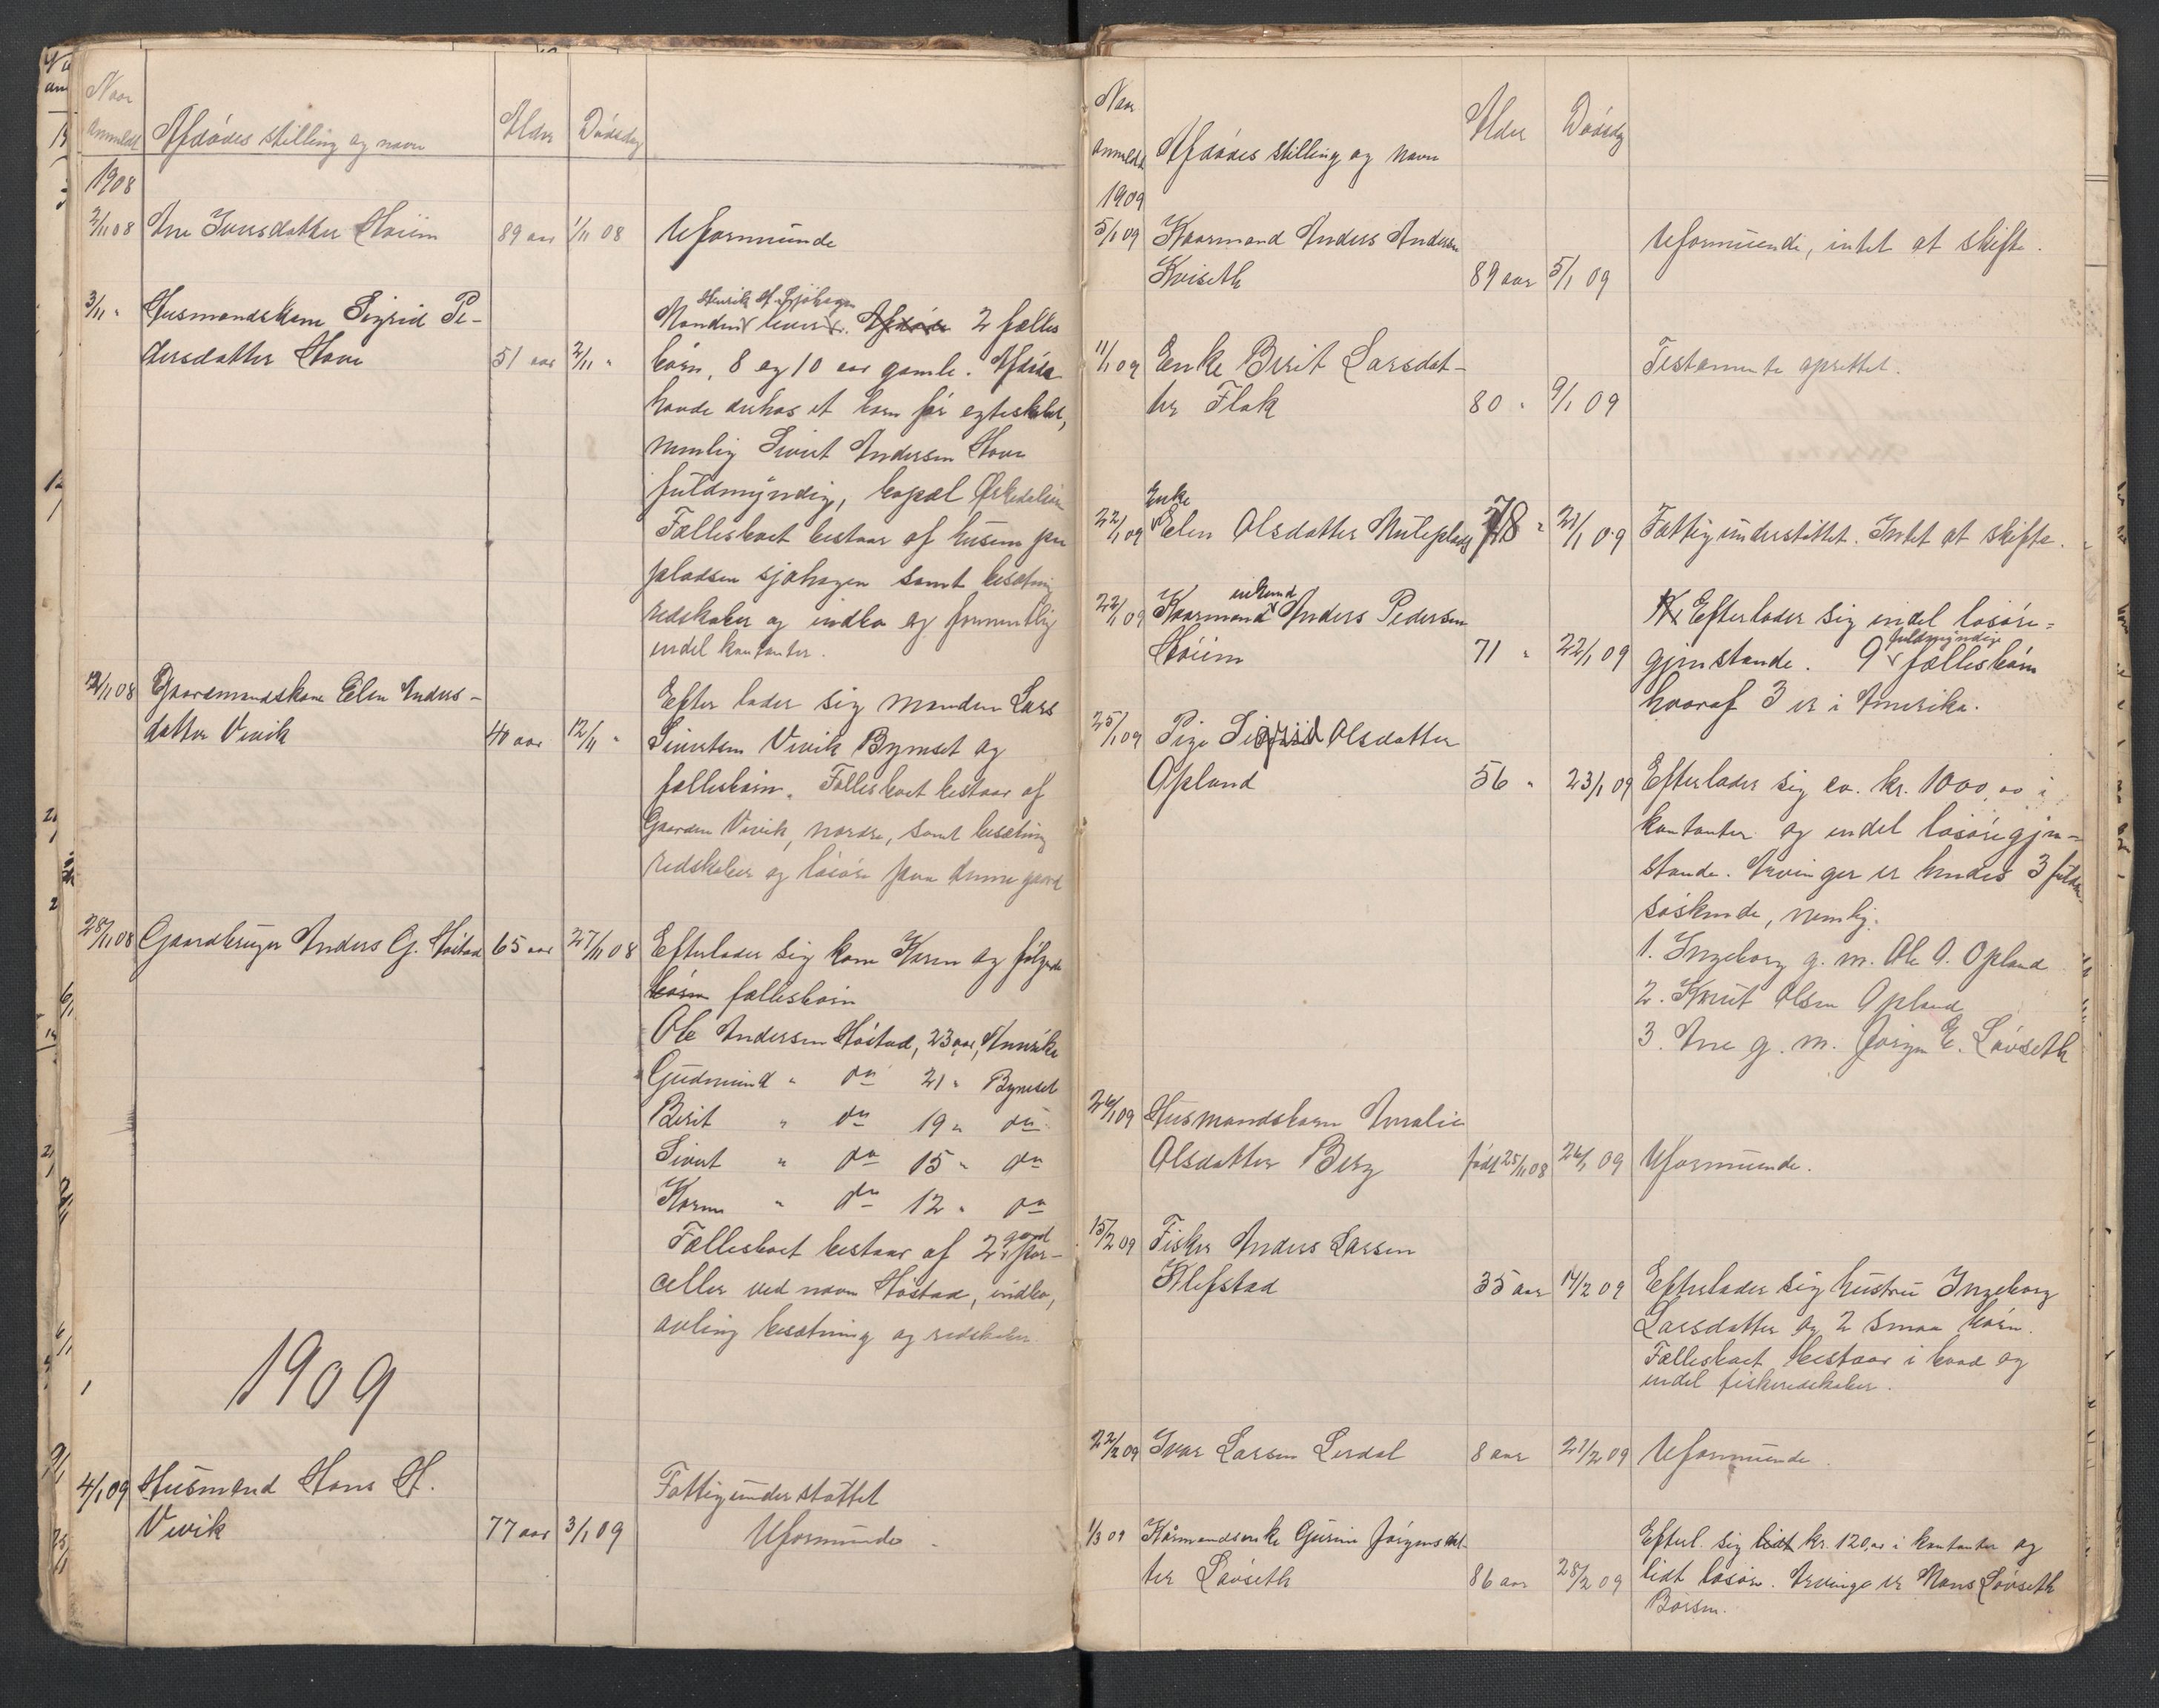 Naar
anmeldt
Afdødes stilling og navn
Alder
Dødsdag
1908
2/11 08 Ane Iversdatter Høiem 89 aar 1/11 08 Uformuende
3/11 " Husmandskone Sigrid Pe-
dersdatter Hove 51 aar 2/11 "
Henrik H. Sjøhagen
Manden lever. Afdøde 2 fælles
børn, 8 og 10 aar gamle. Afdøde
havde derhos et barn før egteskabet,
nemlig Sivert Andersen Hove
fuldmyndig, bopæl Orkedalen
Fællesboet bestaar af husene paa
pladsen Sjøhagen samt besætning
redskaber og indbo og formentlig
endel kontanter.
12/11 08 Gaardmandskone Elen Anders-
datter Vevik 40 aar 12/11 "
Efterlader sig manden Lars
Sivertsen Vevik Bynesset og
fællesbørn. Fællesboet bestaar af
Gaarden Vevik, nordre, samt besætning
redskaber og løsøre paa denne gaard
28/11 08 Gaardbruger Anders G. Høstad 65 aar 27/11 08 Efterlader sig kone Karen og følgende
børn fællesbørn
Ole Andersen Høstad, 23 aar, Amerika
Gudmund " do 21 " Bynesset
Berit " do 19 " do
Sivert " do 15 " do
Karen " do 12 " do
Fællesboet bestaar af 2 gaardpar-
celler ved navn Høstad, indbo,
avling besætning og redskaber
1909
4/1 09 Husmand Hans H.
Vevik 77 aar 3/1 09
Fattigunderstøttet
Uformuende
Naar
anmeldt
Afdødes stilling og navn
Alder
Dødsdag
1909
5/1 09 Kaarmand Anders Andersen
Kviseth 89 aar 5/1 09
Uformuende, intet at skifte.
11/1 09 Enke Berit Larsdat-
ter Flak 80 " 9/1 09
Testamente oprettet.
Enke
22/1 09 Elen Olsdatter Huleplads 78 " 21/1 09 Fattigunderstøttet. Intet at skifte.
enkemand
22/1 09 Kaarmand Anders Pedersen
Høiem 71 " 22/1 09
Efterlader sig endel løsøre-
gjenstande. 9 fuldmyndige fællesbørn
hvoraf 3 er i Amerika.
25/1 09 Pige Sigrid Olsdatter
Opland 56 " 23/1 09 Efterlader sig ca. kr. 1000,00 i
kontanter og endel løsøregjen-
stande. Arvinger er hendes 3 fuld-
søskende, nemlig:
1. Ingeborg g. m. Ole O. Opland
2. Knut Olsen Opland
3. Ane g. m. Jørgen E. Løvseth
26/1 09 Husmandsbarn Amalie
Olsdatter Berg født 25/11 08 26/1 09 Uformuende.
15/2 09 Fisker Anders Larsen
Klefstad 35 aar 14/2 09 Efterlader sig hustru Ingeborg
Larsdatter og 2 smaa børn.
Fællesboet bestaar i baad og
endel fiskeredskaber.
22/2 09 Ivar Larsen Lerdal 8 aar 21/2 09 Uformuende.
1/3 09 Kårmandsenke Gurine Jørgensdat-
ter Løvseth 86 aar 28/2 09
Efterl. sig lidt kr. 120,00 i kontanter og
lidt løsøre. Arvinge er Hans Løvseth
Børsen.